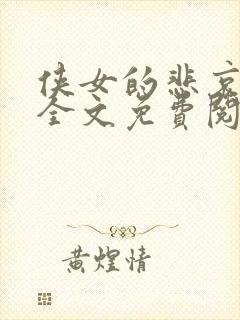 侠女的悲哀
全文免費閱
黄煌情